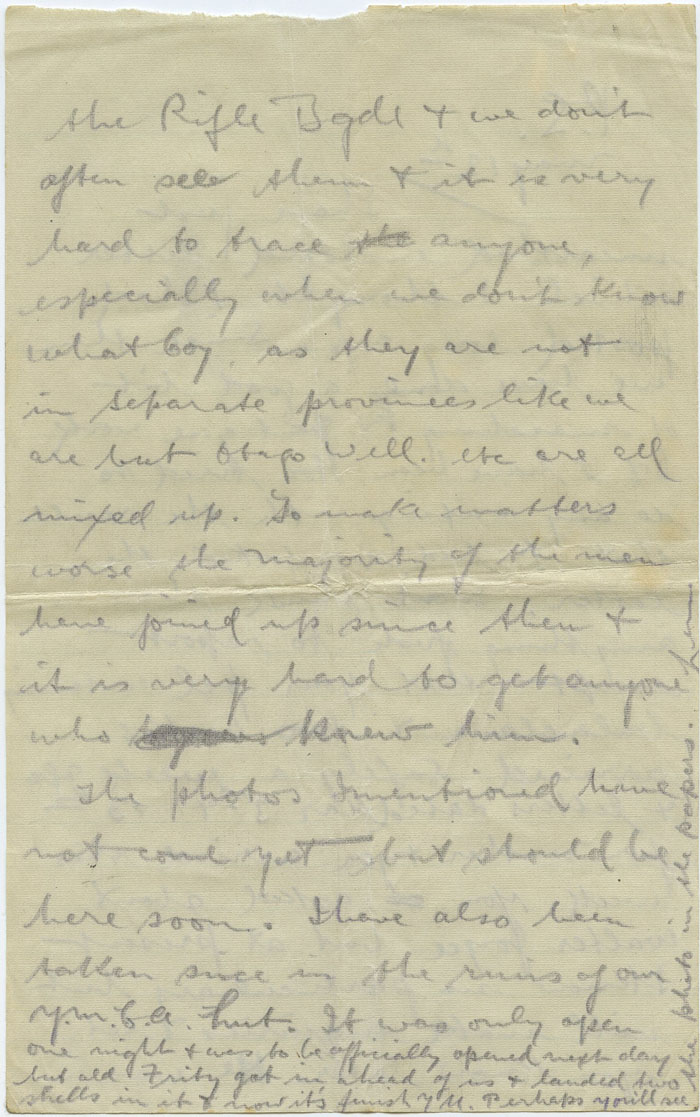 the Rifle Bgde & we don't
often see them & it is very
hard to trace the anyone,
especially when we don't know
what Coy. as they are not
in separate provinces like we
are but Otago Well. etc are all
mixed up. To make matters
worse the majority of the men
have joined up since then &
it is very hard to get anyone
who knew him.
The photos I mentioned have
not come yet but should be
here soon. I have also been
taken since in the ruins of our
Y.M.C.A. hut. It was only open
one night & was to be officially opened next day
but old Fritz got in ahead of us & landed two
shells in it & now its finish Y M. Perhaps you'll see
the photo in the papers.